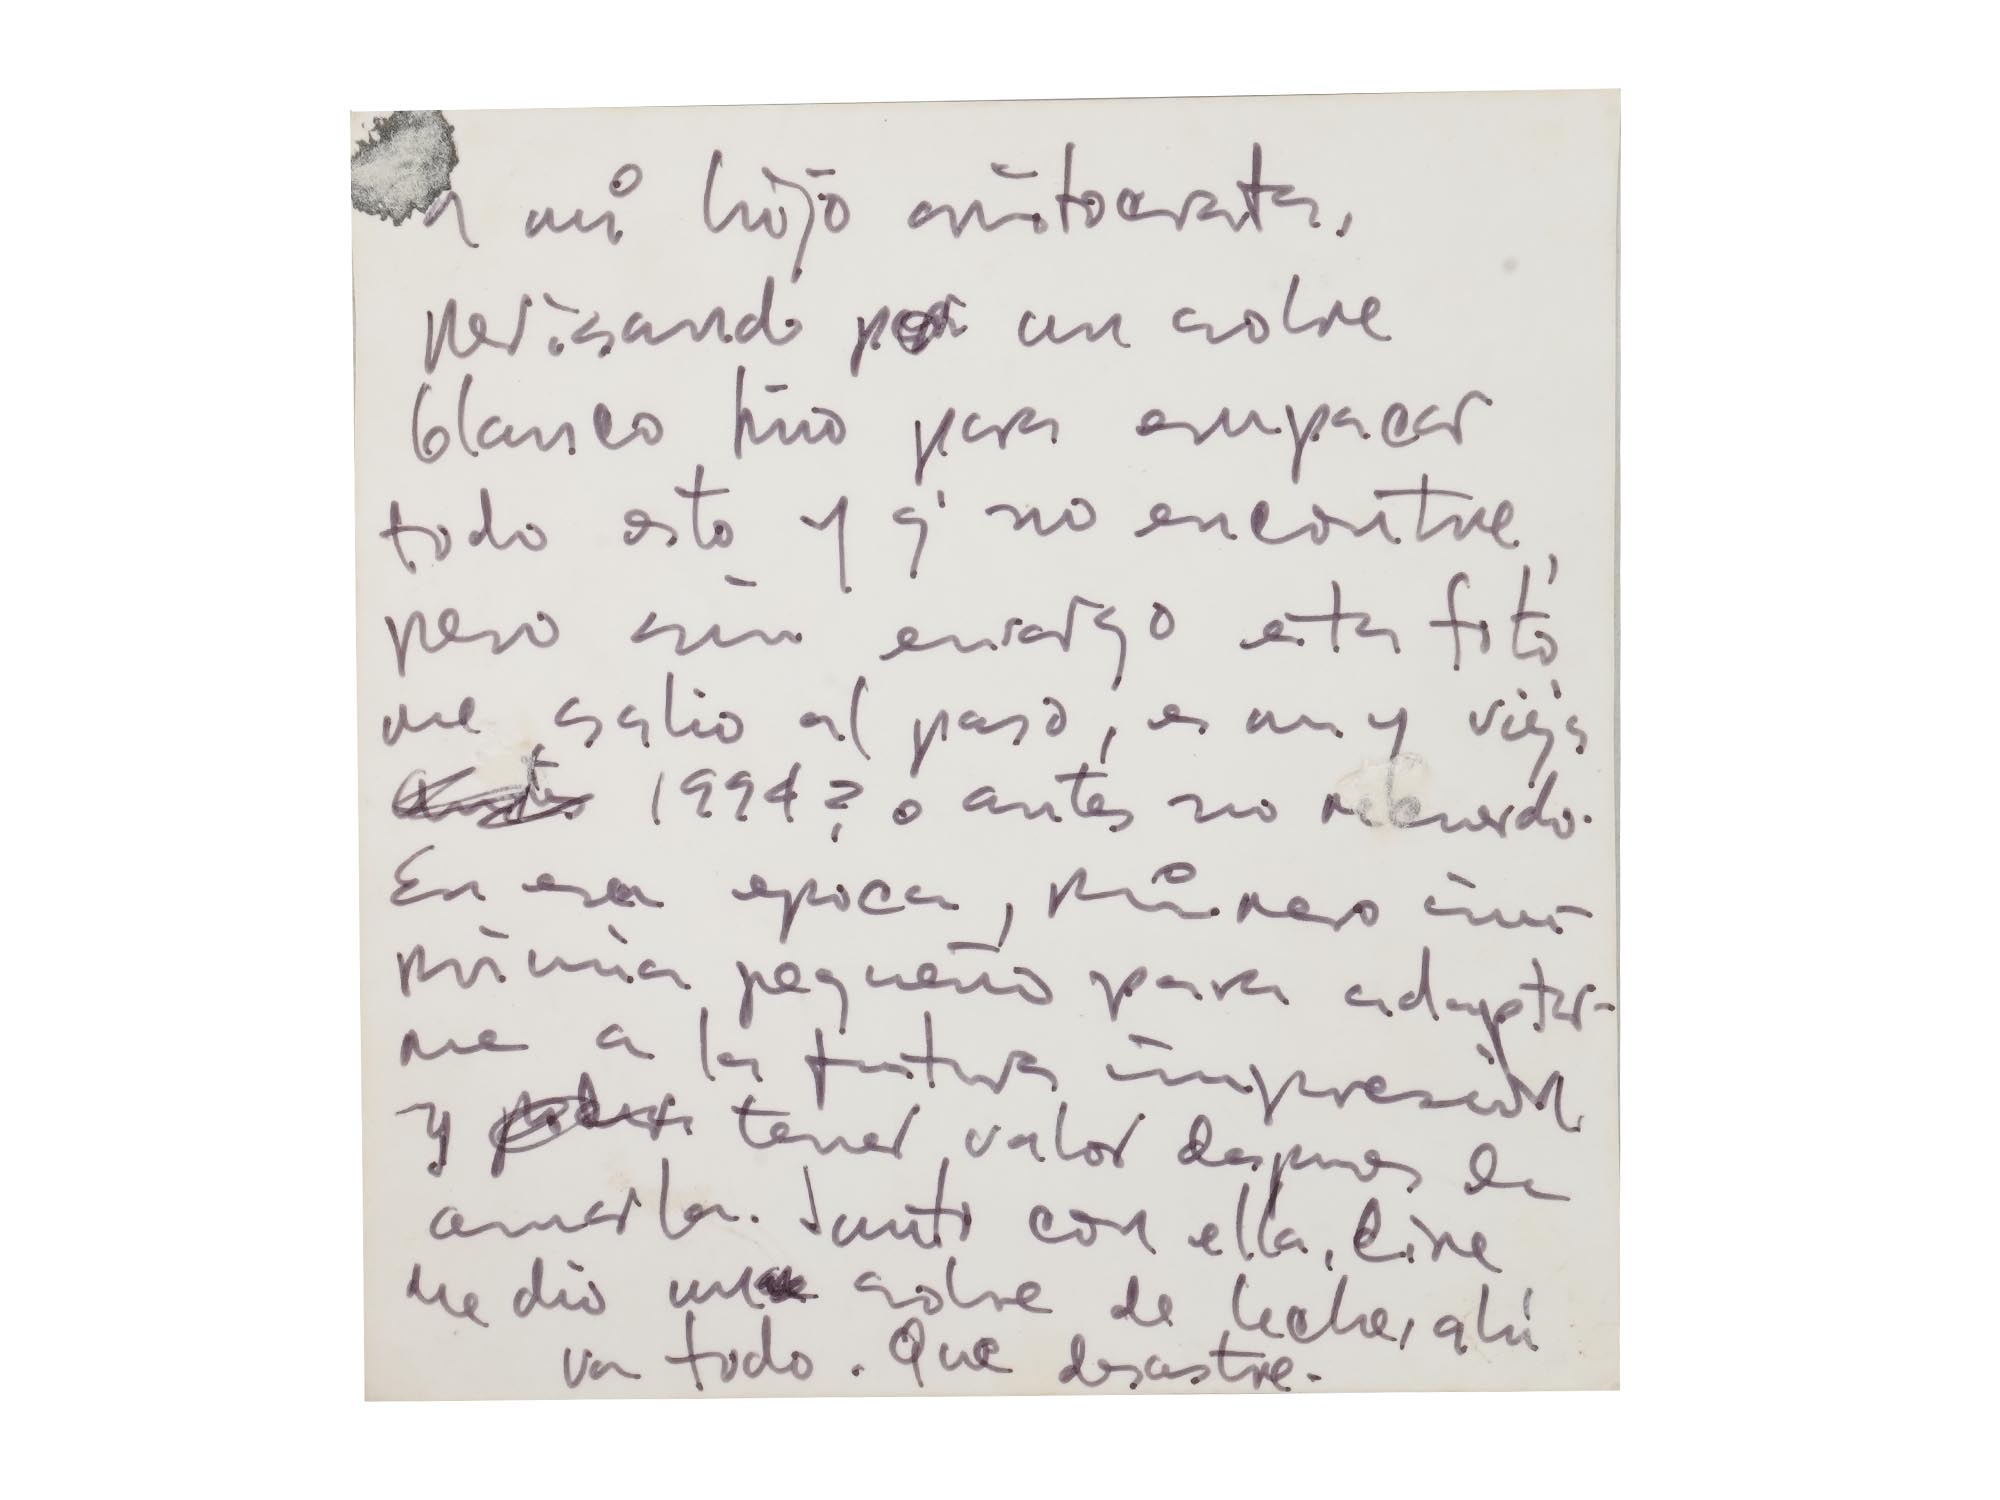 a mi hijo aristocrata,
pensando por un sobre
blanco fino para empacar
todo esto y q' no encontre,
pero sin envargo esta foto
me salio al paso, es muy vieja
1994? o antes no recuerdo.
En esa epoca, primero im-
primia pequeño para adaptar-
me a la futura impresión
y tener valor despues de
amarla. Junto con ella, Cire
me dio un sobre de leche, ahi
va todo. Que desastre.-